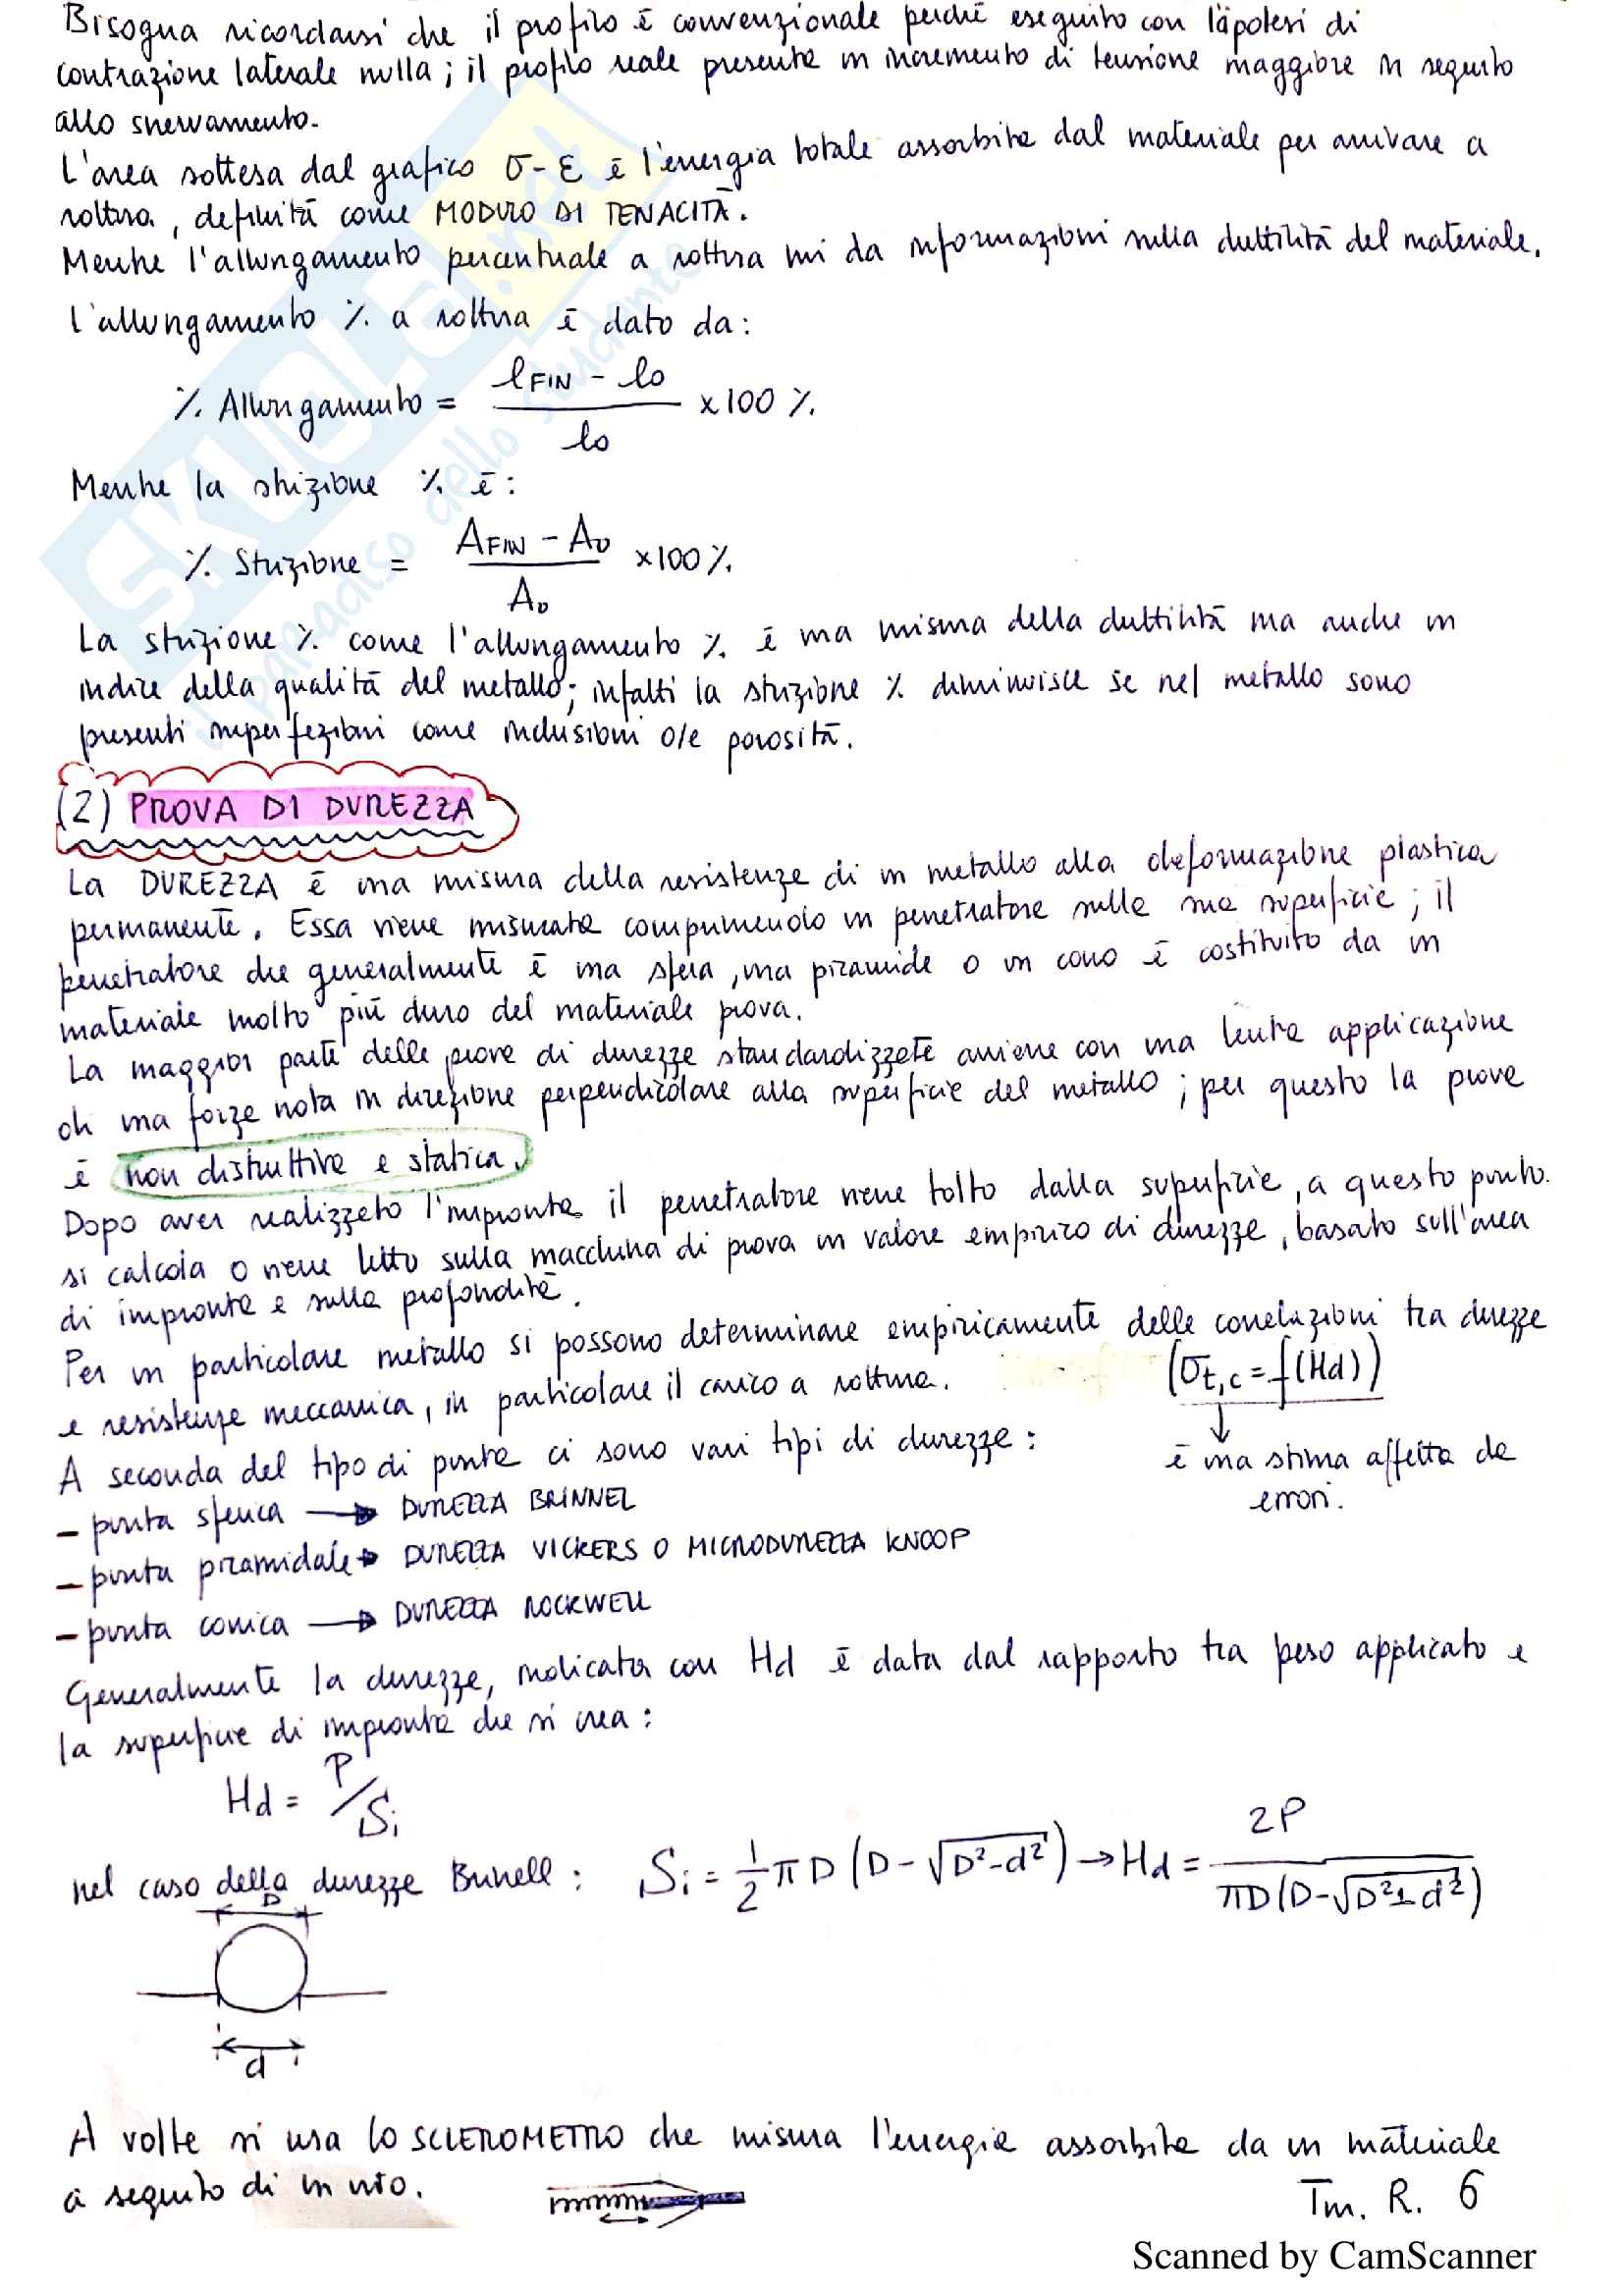 Bisogna ricordarsi che il profilo è convenzionale perché eseguito con l'ipotesi di
contrazione laterale nulla; il profilo reale presenta un incremento di tensione maggiore in seguito
allo snervamento.
L'area sottesa dal grafico σ-ε è l'energia totale assorbita dal materiale per arrivare a
rottura, definita come MODULO DI TENACITÀ.
Mentre l'allungamento percentuale a rottura mi da informazioni sulla duttilità del materiale.
l'allungamento % a rottura è dato da:
% Allungamento = (lFIN - l0) / l0 x100 %
Mentre la strizione % è:
% Strizione = (AFIN - A0) / A0 x100 %
La strizione % come l'allungamento % è una misura della duttilità ma anche un
indice della qualità del metallo; infatti la strizione % diminuisce se nel metallo sono
presenti imperfezioni come inclusioni o/e porosità.
(2) PROVA DI DUREZZA
La DUREZZA è una misura della resistenza di un metallo alla deformazione plastica
permanente. Essa viene misurata comprimendo un penetratore sulla sua superficie; il
penetratore che generalmente è una sfera, una piramide o un cono è costituito da un
materiale molto più duro del materiale prova.
La maggior parte delle prove di durezza standardizzate avviene con una lenta applicazione
di una forza nota in direzione perpendicolare alla superficie del metallo; per questo la prova
è non distruttiva e statica.
Dopo aver realizzato l'impronta il penetratore viene tolto dalla superficie, a questo punto
si calcola o viene letto sulla macchina di prova un valore empirico di durezza, basato sull'area
di impronta e sulla profondità.
Per un particolare metallo si possono determinare empiricamente delle correlazioni tra durezza
e resistenza meccanica, in particolare il carico a rottura. (σt,c = f(Hd))
A seconda del tipo di punta ci sono vari tipi di durezza: è una stima affetta da
errori.
- punta sferica → DUREZZA BRINNEL
- punta piramidale → DUREZZA VICKERS O MICRODUREZZA KNOOP
- punta conica → DUREZZA ROCKWELL
Generalmente la durezza, indicata con Hd è data dal rapporto tra peso applicato e
la superficie di impronta che si crea:
Hd = P/Si
nel caso della durezza Brinell: Si = 1/2 πD (D - √D²-d²) → Hd = 2P / πD(D-√D²-d²)
D
d
A volte si usa lo SCLEROMETRO che misura l'energia assorbita da un materiale
a seguito di un urto.
Tm. R. 6
Scanned by CamScanner
SKUOLA.net
il paradiso dello studente